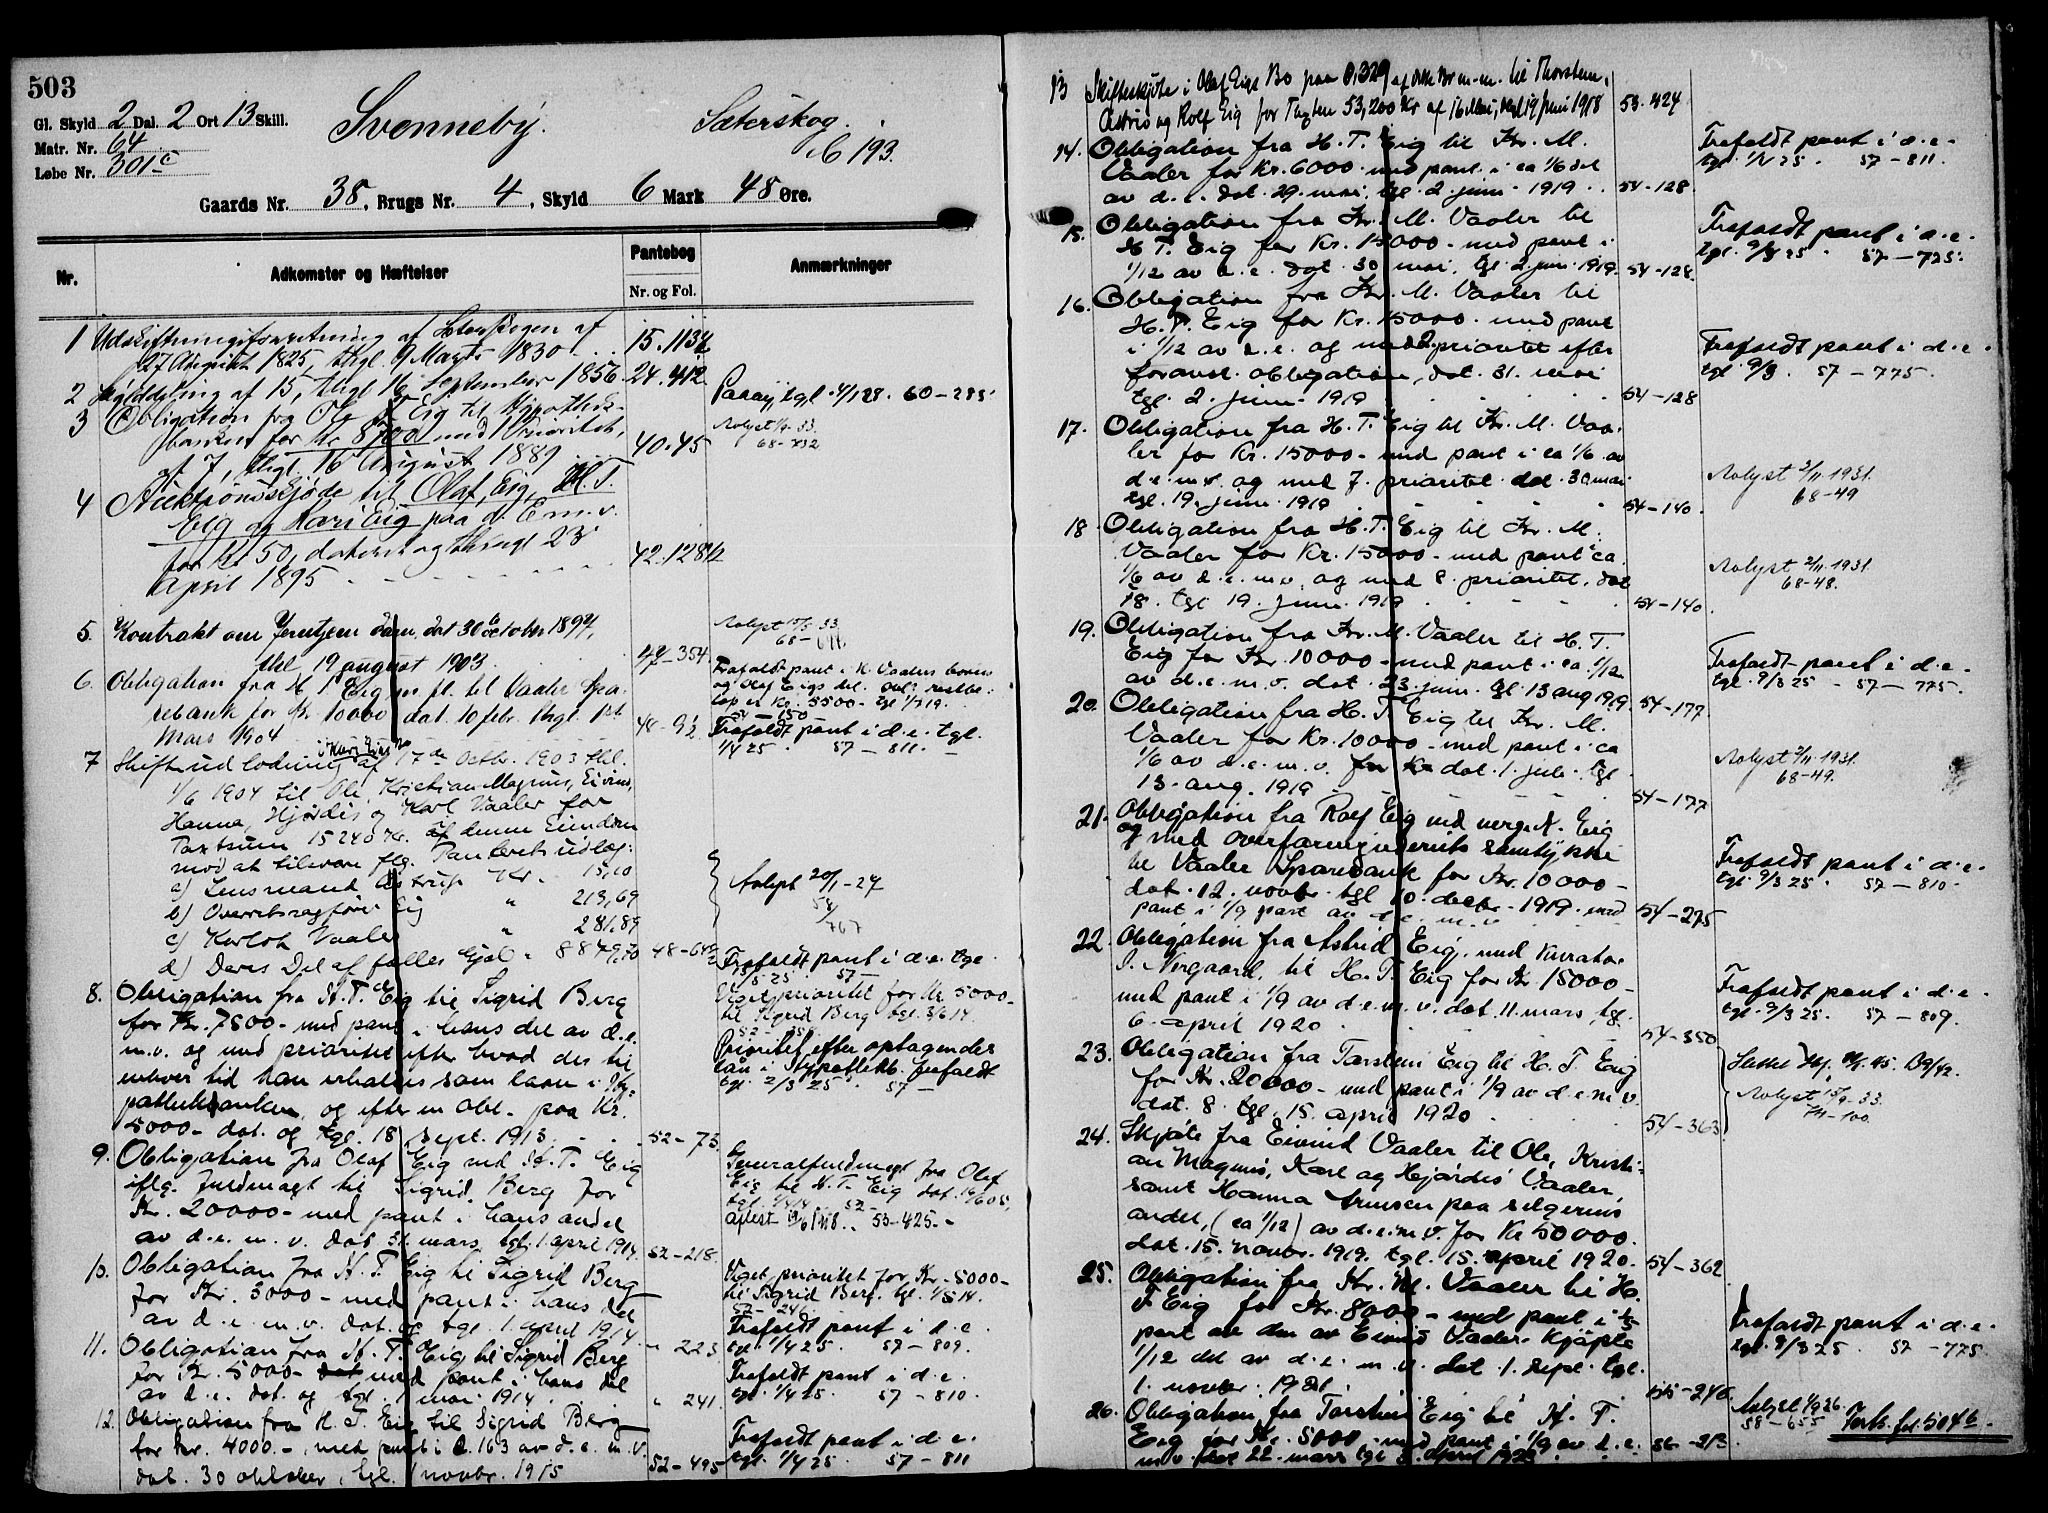 503
Gl. Skyld 2 Dal. 2 Ort 13 Skill.
Matr. Nr. 64
Løbe Nr. 301c
Svenneby.
Sæterskog.
C 193.
Gaards Nr. 38, Brugs Nr. 4, Skyld 6 Mark 48 Øre.
Nr. Adkomster og Hæftelser Pantebog Nr. og Fol. Anmærkninger
1 Udskiftningsforretning af Sæterskogen af
27 August 1825, thgl. 9 Marts 1830 15.1134
2 Skylddeling af 15, thgl 16 September 1856 24.412.
3 Obligation fra Ole T Eig til Hypothek-
banken for Kr 8700 med 1 Prioritet,
af 7, thgl. 16 August 1889 40.45
Aolyst 33.
68-432
4 Auktionsskjøde til Olaf Eig, H. T.
Eig og Kari Eig paa d. E m.v.
for Kr 50, dateret og thingl 23
April 1895 42.128½
5. Kontrakt om Jerntjern dam, dat 30 october 1894,
thl 19 august 1903. 47-354
Aolyst 33
68-
6. Obligation fra H T Eig m. fl. til Vaaler Spa-
rebank for Kr 10000 dat. 10 febr. thgl. 1st
Mars 1904 48-92
Frafaldt pant i K. Vaalers
og Olaf Eigs del. Obl. restbe-
løp er Kr. 5500-
54-150
Frafaldt pant i d.e. tgl.
1/4 25. 57-811.
7 Skifteudlodning i Kari Eigs Bo af 17de Octbr. 1903 thl.
1/6 1904 til Ole, Kristian Magnus, Eivind,
Hanna, Hjørdis og Karl Vaaler for
Taxtsum 15240 Kr. af denne Eiendom
mod at tilsvare flg. Panterets udlæg:
a) Lensmand Astrup Kr. 15,10
b) Overretssagfører Eig " 213,69
c) Karlot Vaaler " 281,89
d) Deres Del af fælles Gjæl " 8879,70 48-649
Aolyst 20/1-27
58/767
8. Obligation fra H. T. Eig til Sigrid Berg
for Kr. 7500- med pant i hans del av d.e.
m.v. og med prioritet efter hvad der til
enhver tid kan erholdes som laan i Hy-
pothekbanken, og efter en obl. paa Kr.
5000- dat. og tgl. 18 sept. 1913. 52-73
Frafaldt pant i d.e. tgl.
57-
Veget prioritet for Kr 5000-
til Sigrid Berg tgl. 3/6 14.
Prioritet efter optagendes
lån i Hypothekb. frafaldt
tgl. 2/3 25. 57-
9. Obligation fra Olaf Eig ved H. T. Eig
iflg. fuldmagt til Sigrid Berg for
Kr. 20000- med pant i hans andel
av d.e. m.v. dat. 31. mars, tgl. 1. april 1914. 52-218.
Generalfuldmagt fra Olaf
Eig til H. T. Eig dat.
Aflest 19/6/1918. 53-425.-
10. Obligation fra H. T. Eig til Sigrid Berg
for Kr. 3000- med pant i hans del
av d.e. m.v. dat. og tgl. 1. april 1914. " 223
Veget prioritet for Kr. 5000-
til Sigrid Berg. tgl. 1/5 14.
52-246
Frafaldt pant i d.e.
tgl. 1/4 25. 57-809.
11. Obligation fra H. T. Eig til Sigrid Berg
for Kr. 5000- med pant i hans del
av d.e. dat. og tgl. 1 mai 1914. " 241.
Frafaldt pant i d.e.
tgl. 1/4 25. 57-810.
12. Obligation fra H. T. Eig til Sigrid Berg
for Kr. 4000.- med pant i 0.163 av d.e. m.v.
dat. 30 oktober, tgl. 1 novbr. 1915 52-495
Frafaldt pant i d.e.
tgl. 1/4 25. 57-811
13 Skifteskjøte i Olaf Eigs Bo paa 0,329 af dette Br m-m. til Thorstein,
Astrid og Rolf Eig for Taxten 53,200 Kr af 16 Mai, thgl 19 Juni 1918 53.424
14. Obligation fra H. T. Eig til Kr. M.
Vaaler for Kr. 6000 med pant i ca 1/6 del
av d.e. dat. 29. mai, tgl. 2. juni 1919. 54-128.
Frafaldt pant i d.e.
tgl. 57-811.
15. Obligation fra Kr. M. Vaaler til
H. T. Eig for Kr. 15000- med pant i
1/12 av d.e. dat. 30 mai, tgl. 2. juni 1919. 54-128.
Frafaldt pant i d.e.
tgl. 9/3 25. 57-775.
16. Obligation fra Kr. M. Vaaler til
H. T. Eig for Kr. 15000- med pant
i 1/12 av d.e. og med 2 prioritet efter
foranst. obligation, dat. 31. mai
tgl. 2. juni 1919 54-128
Frafaldt pant i d.e.
tgl. 9/3. 57-775.
17. Obligation fra H. T. Eig til Kr. M. Vaa-
ler for Kr. 15000- med pant i ca 1/6 av
d.e. m.v. og med 7. prioritet dat. 30 mai
tgl. 19. juni 1919 54-140.
Aolyst 2/11-1931.
68-49
18 Obligation fra H. T. Eig til Kr. M.
Vaaler for Kr. 15000- med pant i ca.
1/6 av d.e. m.v. og med 8. prioritet, dat
18. tgl 19. juni 1919 54-140.
Aolyst 2/11-1931.
68-48.
19. Obligation fra Kr. M. Vaaler til H. T.
Eig for Kr. 10000- med pant i ca. 1/12
av d.e. m.v. dat. 23. juni tgl 13 aug 1919. 54-177
Frafaldt pant i d.e.
tgl. 9/3 25 - 57-775.
20. Obligation fra H. T. Eig til Kr. M.
Vaaler for Kr. 10000- med pant i ca
1/6 av d.e. m.v. dat. 1. juli tgl
13. aug. 1919 54-177
Aolyst 2/11-1931.
68-49.
21. Obligation fra Rolf Eig ved verge N. Eig
og med overformynderiets samtykke
til Vaaler Sparebank for Kr. 10000-
dat. 12. novbr. tgl 10. decbr. 1919. med
pant i 1/9 part av d.e. m.v. 54-275
Frafaldt pant i d.e.
tgl. 9/3 25. 57-810.
22. Obligation fra Astrid Eig, med kurator
I. Nergaard, til H. T. Eig for Kr 15000-
med pant i 1/9 av d.e. m.v. dat. 11. mars, tgl.
6. april 1920 54-350
Frafaldt pant i d.e.
tgl. 9/3 25. 57-809.
23. Obligation fra Torstein Eig til H. T. Eig
for Kr. 20000- med pant i 1/9 av d.e. m.v.
dat. 8. tgl. 15. april 1920 54-363
Aolyst 33.
71-100.
24. Skjøte fra Eivind Vaaler til Ole, Kristi-
an Magnus, Karl og Hjørdis Vaaler,
samt Hanna Arnesen paa selgerens
andel, (ca 1/12) av d.e. m.v. for Kr 50000.
dat. 15. novbr. 1919. tgl. 15. april 1920. 54-362
25. Obligation fra Kr. M. Vaaler til H.
T Eig for Kr. 8000- med pant i 1/5
part av den av Eivind Vaaler kjøpte
1/12 del av d.e. m.v. dat. 1. sept. tgl.
1. novbr. 1921. 55-246
Frafaldt pant i d.e.
tgl. 9/3 25. 57-775.
26. Obligation fra Torstein Eig til H. T.
Eig for Kr. 5000- med pant i 1/9 av d.e.
m.v. dat. 22. mars tgl 3. april 1923. 56-313.
Aolyst 26
58-655
Forts. fol. 504b